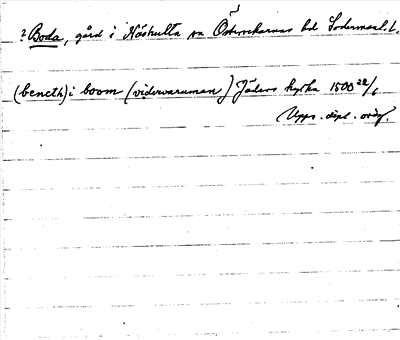 ? Boda, gård i Näshulta sn Österrekarnas hd Södermanl. l.
(bencth) i boom (vidervaruman) Jäders kyrka 1500 22/6
Upps. dipl. orig.